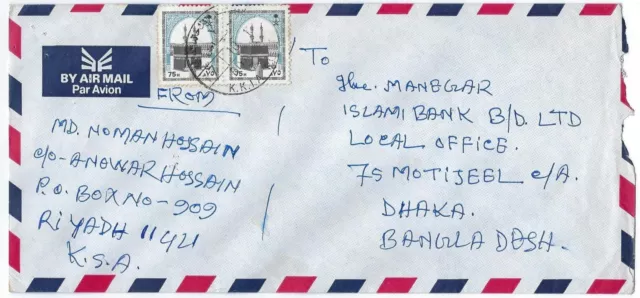 BY AIR MAIL
Par Avion
75H
75H
K.K.I.
FROM
MD. NOMAN HOSSAIN
C/O- ANOWAR HOSSAIN
P.O. BOX NO - 909
RIYADH 11421
K.S.A.
To
The. MANEGAR
ISLAMI BANK B/D. LTD
LOCAL OFFICE.
75 MOTIJEEL C/A.
DHAKA.
BANGLADESH.